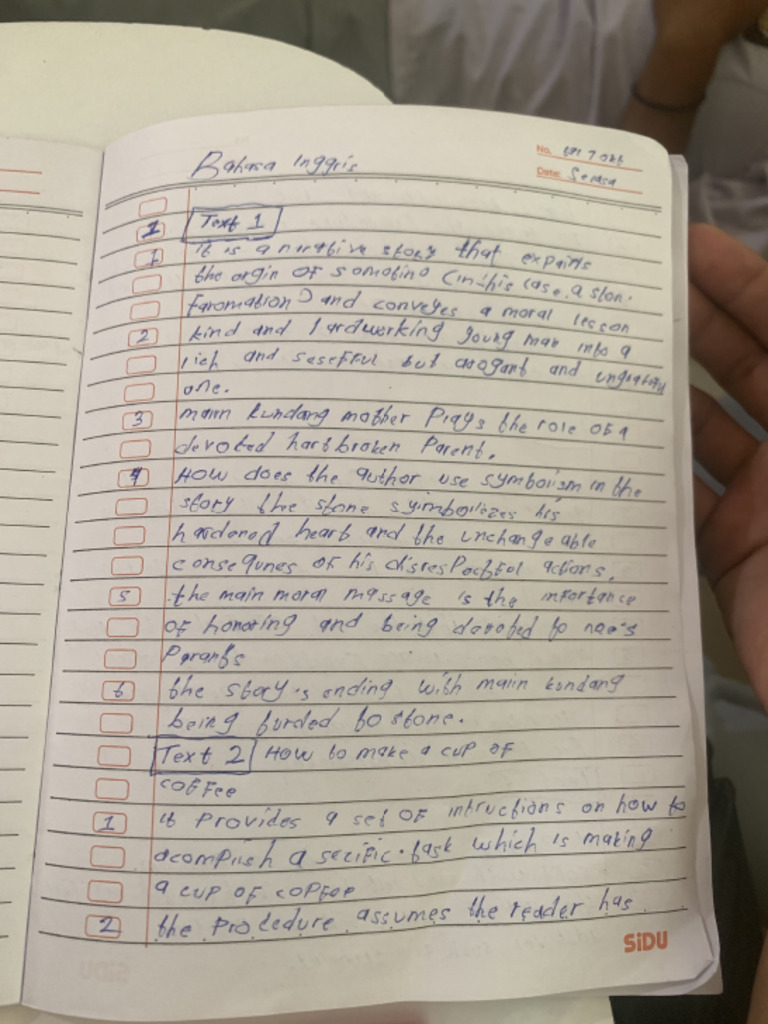 Bahasa Inggris
No. 7 Okt
Date: Selasa
1 Text 1
1 it is a narative story that expains
the orgin OF somotino (in this case, a ston.
Faromation) and conveyes a moral lesson
2 kind and hardworking young man into a
rich and sesefful but arogant and
one.
3 maiin kundang mother Plays the role of a
devoted hartbroken Parent.
4 How does the author use symboiism in the
story the stone syimboilezes his
hardened heart and the unchangeable
consequnes of his disresPectful actions.
5 the main moral massage is the imfortance
OF honoring and being devoted to
Parants
6 the story's ending with maiin kundang
being turded to stone.
Text 2 How to make a cup OF
COFFee
1 it Provides a set OF intructions on how to
acomplish a secific task which is making
a cup OF
2 the Procedure assumes the reader has
SiDU